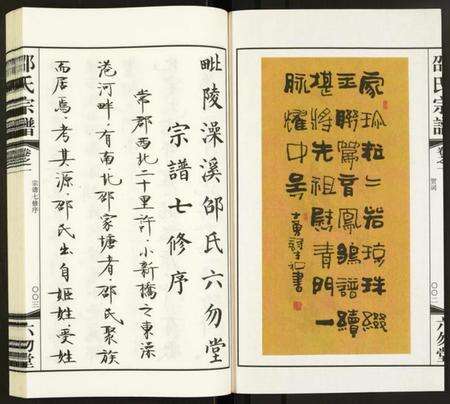 邵氏宗譜
賀詞
〇〇二
六勿堂
家珍粒二若琼珠綴
玉聯篇首鳳鶵譜續
堪將先祖慰青門一
脉耀中吴
書
毗陵澡溪邵氏六勿堂
宗譜七修序
常郡西北二十里許，小新橋之東澡
港河畔，有南北邵家塘者邵氏聚族
而居焉，考其源，邵氏出自姬姓受姓
邵氏宗譜
宗譜七修序
〇〇三
六勿堂